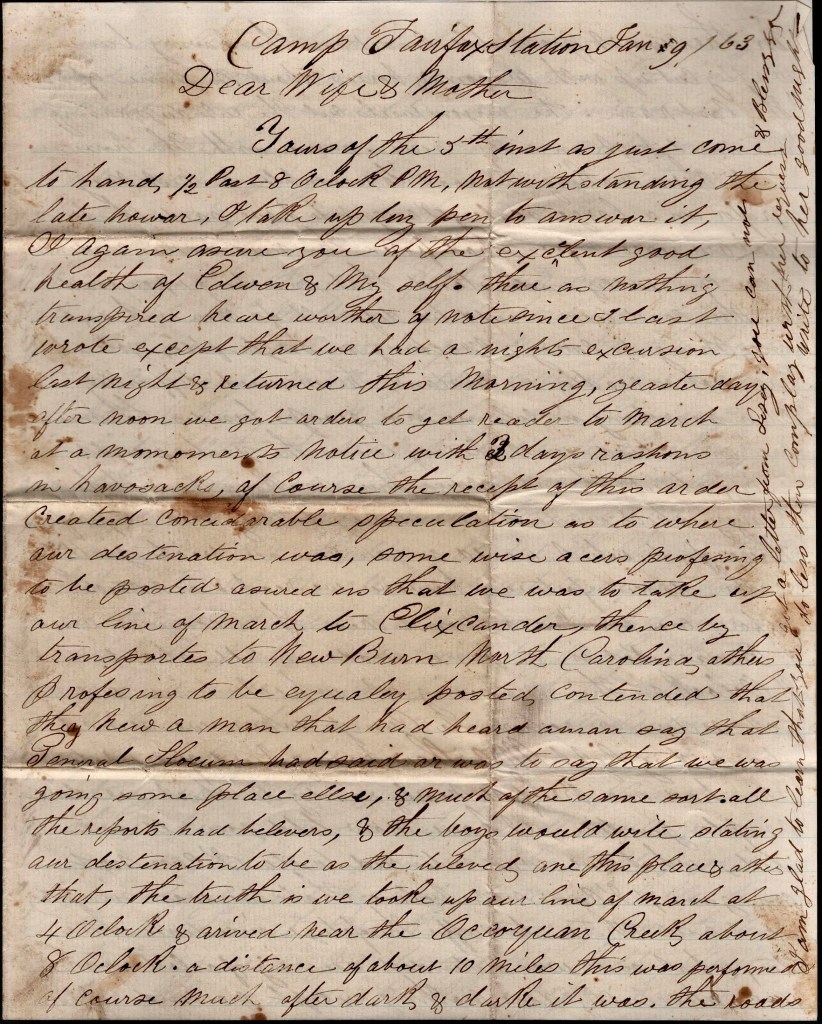 Camp Fairfax Station Jan 9/63
Dear Wife & Mother
Yours of the 5th inst as just come
to hand, ½ Past 8 Oclock PM, Notwithstanding the
late howar, I take up my pen to answar it,
I again asure you of the exclent good
health of Edwen & My self. there as nothing
transpired heare worther of note since I last
wrote except that we had a nights excursion
last night & returned this Morning, yeasterday
after noon we got orders to get reader to March
at a momoments notice with 3 days rashons
in havosacks, of Course the recept of this order
Createed Concidarable speculation as to where
our destenation was, some wise acers profesing
to be posted asured us that we was to take up
our line of march to Elixcander, thence by
transportes to New Burn North Carolina, others
Profesing to be equaley posted, contended that
they New a man that had heard aman say that
General Slocum had said or was to say that we was
going some place ellse, & Much of the same sort. all
the reports had belevers, & the boys would wite stating
our destenation to be as the beleved, one this place & other
that, the truth is we tooke up our line of march at
4 Oclock & arived near the Occoquan Creek, about
8 Oclock. a distance of about 10 Miles this was performed
of course much after dark, & darke it was. the roads
I am glad to learn that you got a letter from you can not
do less then Comploy with her request &
write to her good night